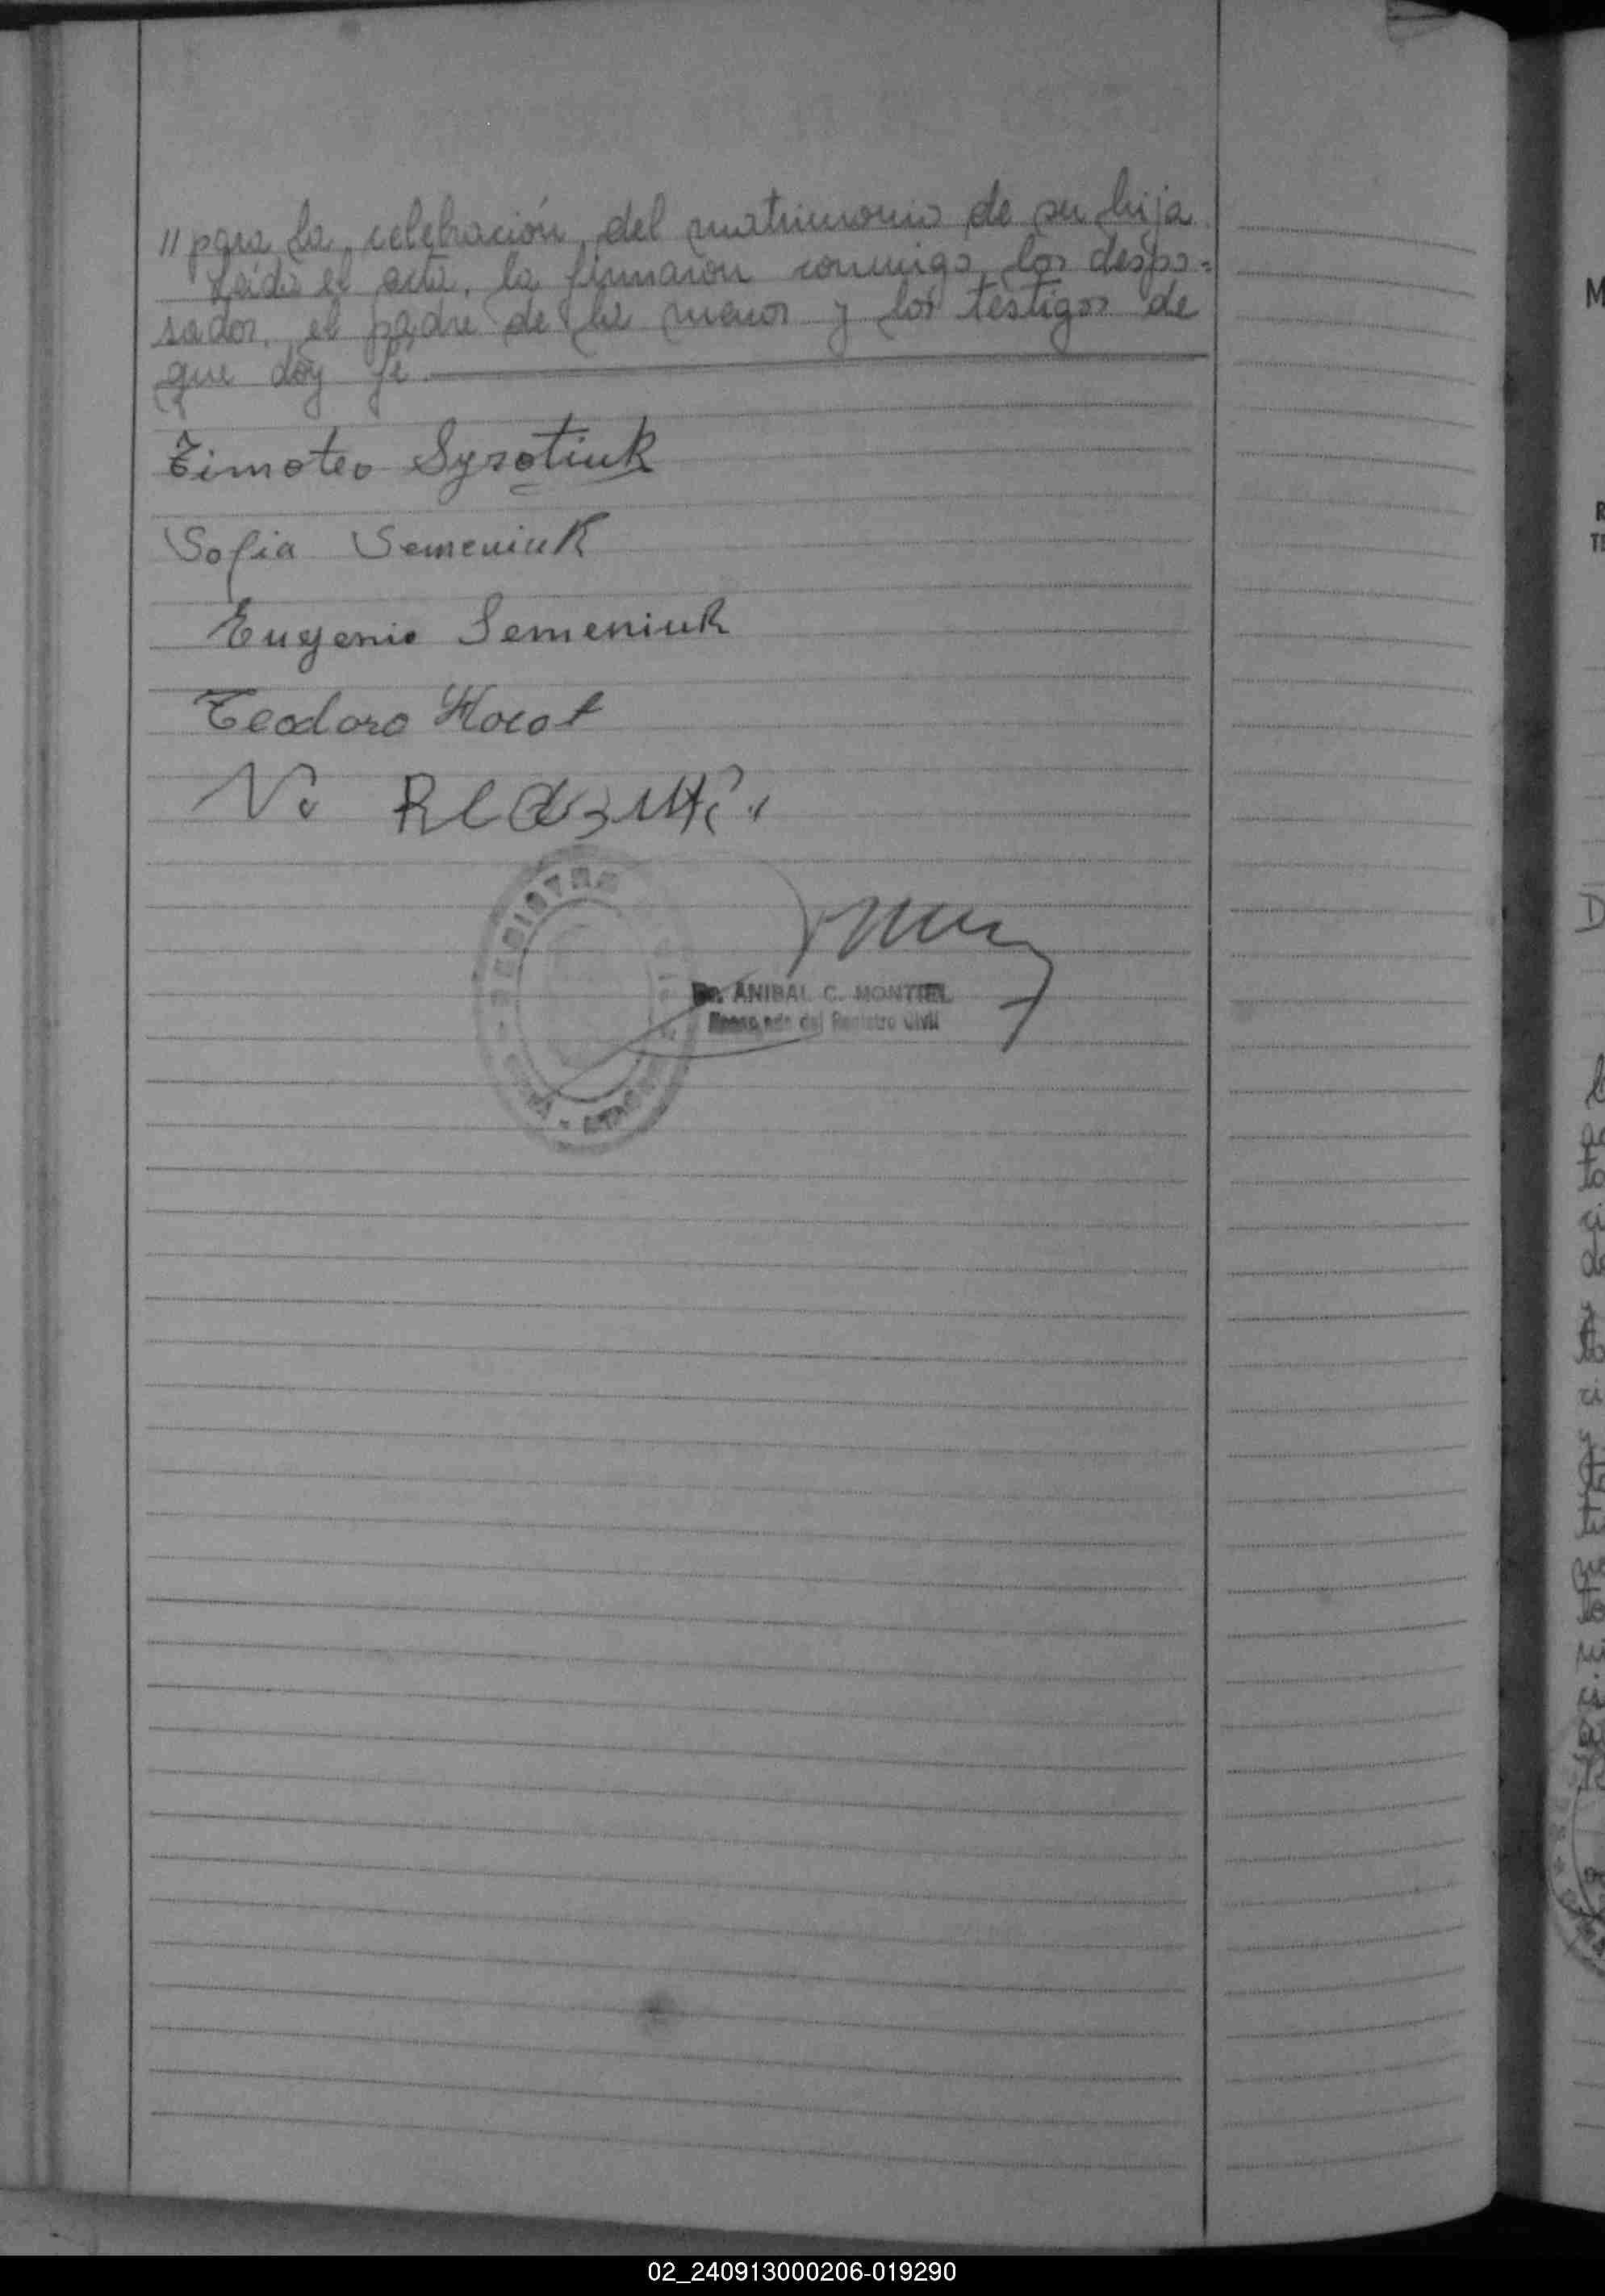 // para la celebración del matrimonio de su hija.
Leída el acta, la firmaron conmigo, los despo=
sados, el padre de la menor y los testigos de
que doy fé.
Timoteo Syrotiuk
Sofia Semeniuk
Eugenio Semeniuk
Teodoro
N.
REGISTRO
Dr. ANIBAL C. MONTIEL
Encargado del Registro Civil
M
R
TE
D
02_240913000206-019290